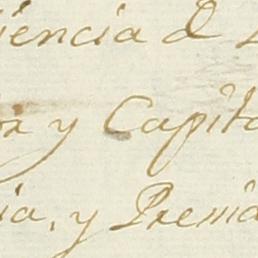 iencia d
or y Capita
ia, y Presid